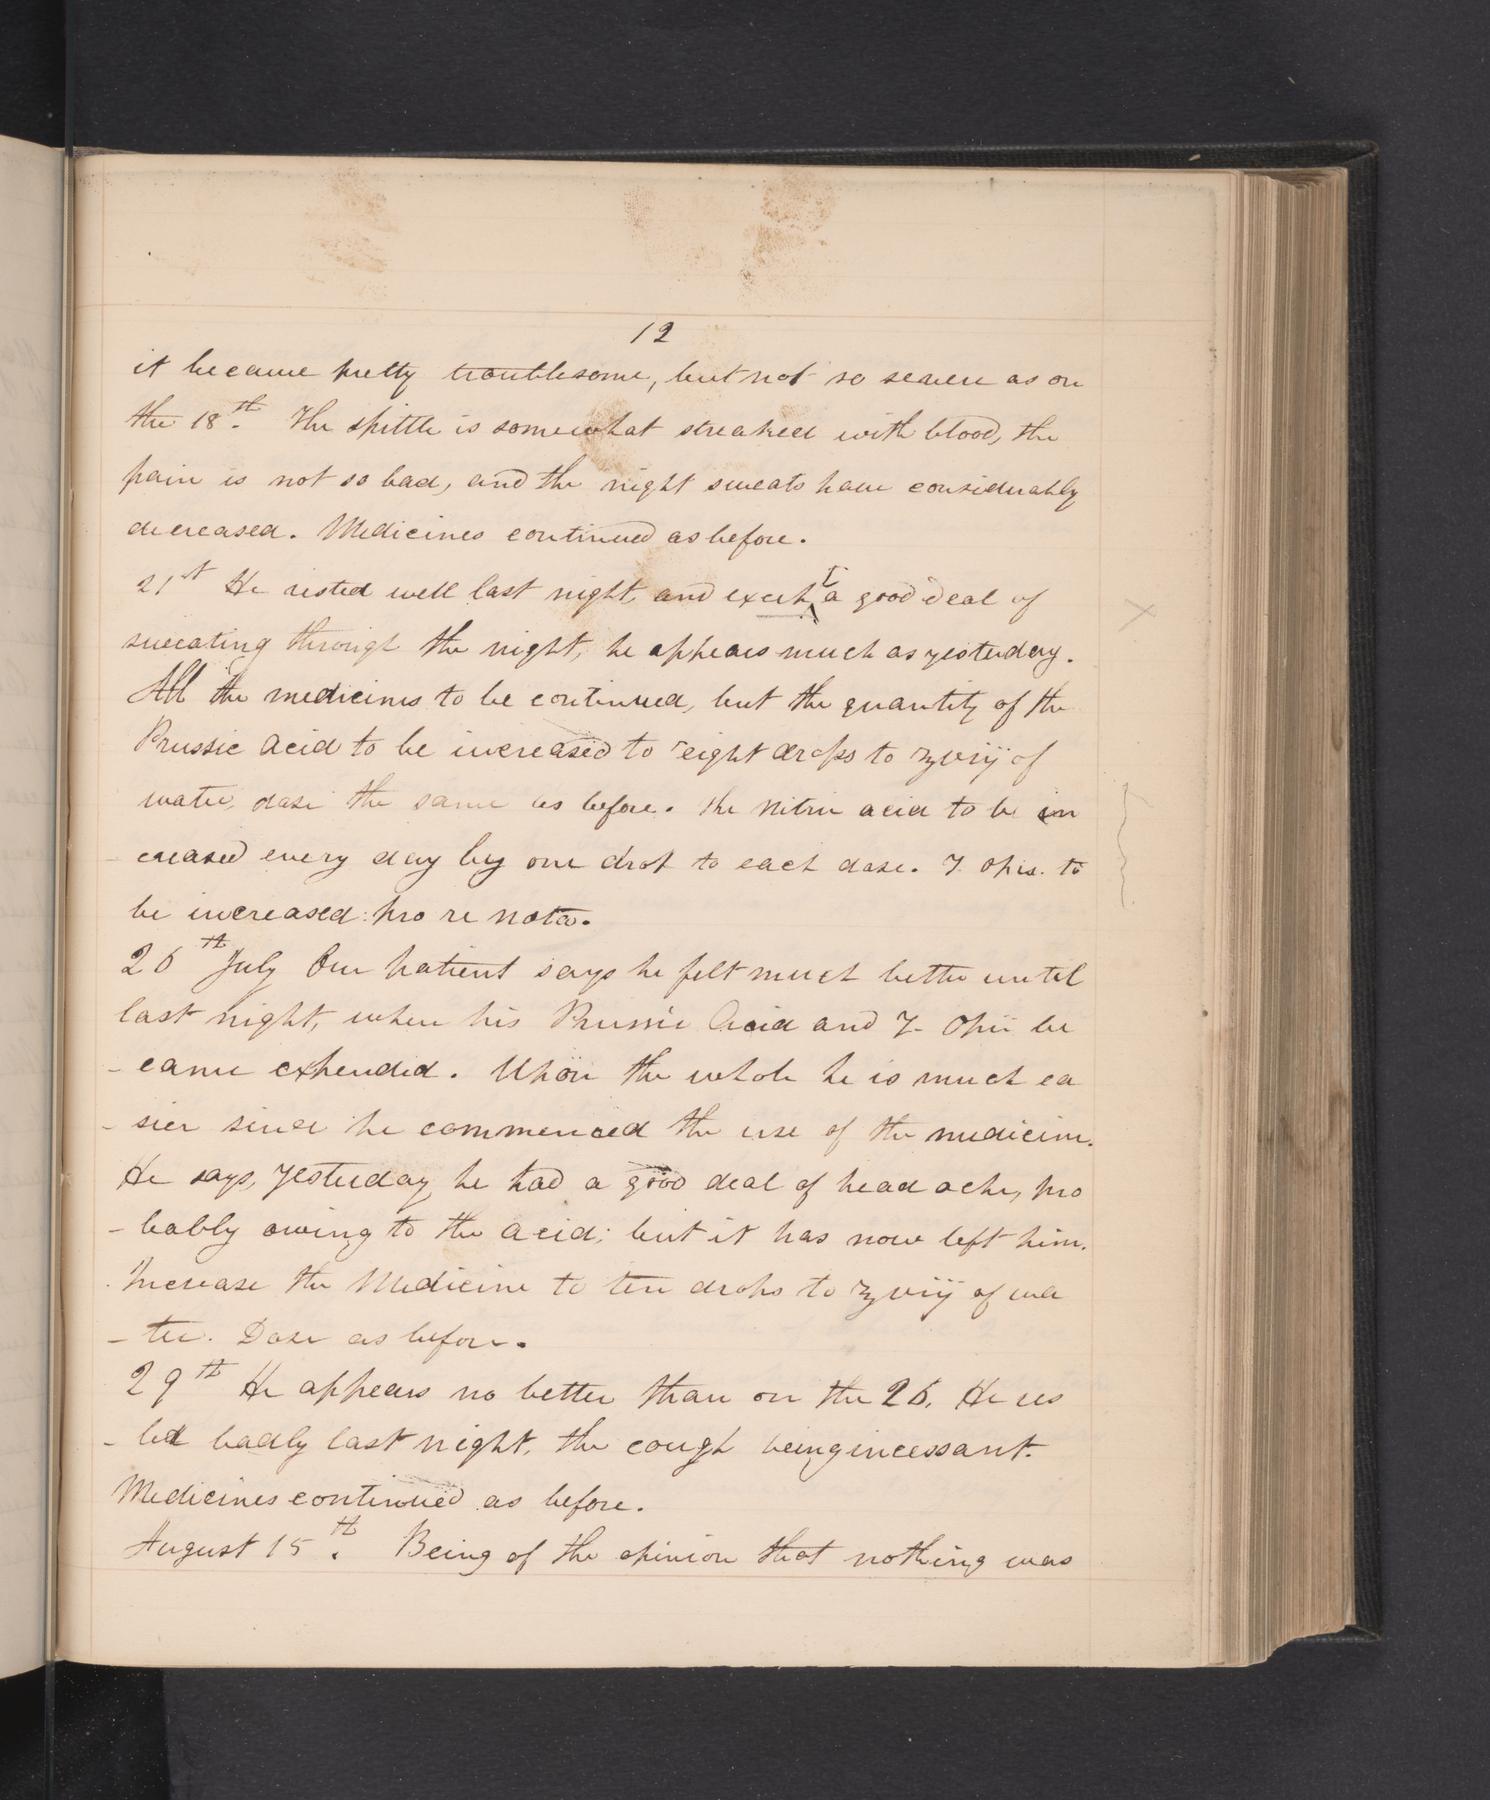 12
it became pretty troublesome, but not so severe as on
the 18th. The spittle is somewhat streaked with blood, the
pain is not so bad, and the night sweats have considerably
decreased. Medicines continued as before.
21st He rested well last night, and except a good deal of
sweating through the night, he appears much as yesterday.
All the medicines to be continued, but the quantity of the
Prussic acid to be increased to eight drops to ʒviij of
water, dose the same as before. The Nitric acid to be in
creased every day by one drop to each dose. T. Opii. to
be increased: pro re nata.
26th July Our patient says he felt much better until
last night, when his Prussic Acid and T- Opii be
- came expended. Upon the whole he is much ea
- sier since he commenced the use of the medicine.
He says, yesterday he had a good deal of head ache, pro
- bably owing to the acid; but it has now left him.
Increase the Medicine to ten drops to ʒviij of wa
- ter. Dose as before.
29th He appears no better than on the 26. He res
- ted badly last night, the cough being incessant.
Medicines continued as before.
August 15th. Being of the opinion that nothing was